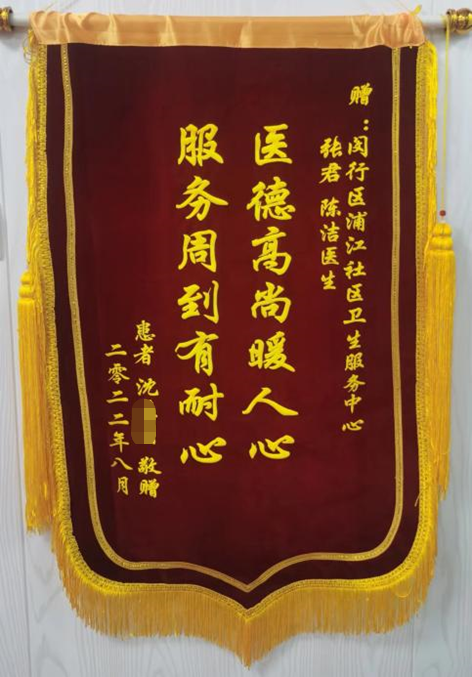 赠：闵行区浦江社区卫生服务中心
张君 陈洁医生
医德高尚暖人心
服务周到有耐心
患者 沈 敬赠
二零二二年八月